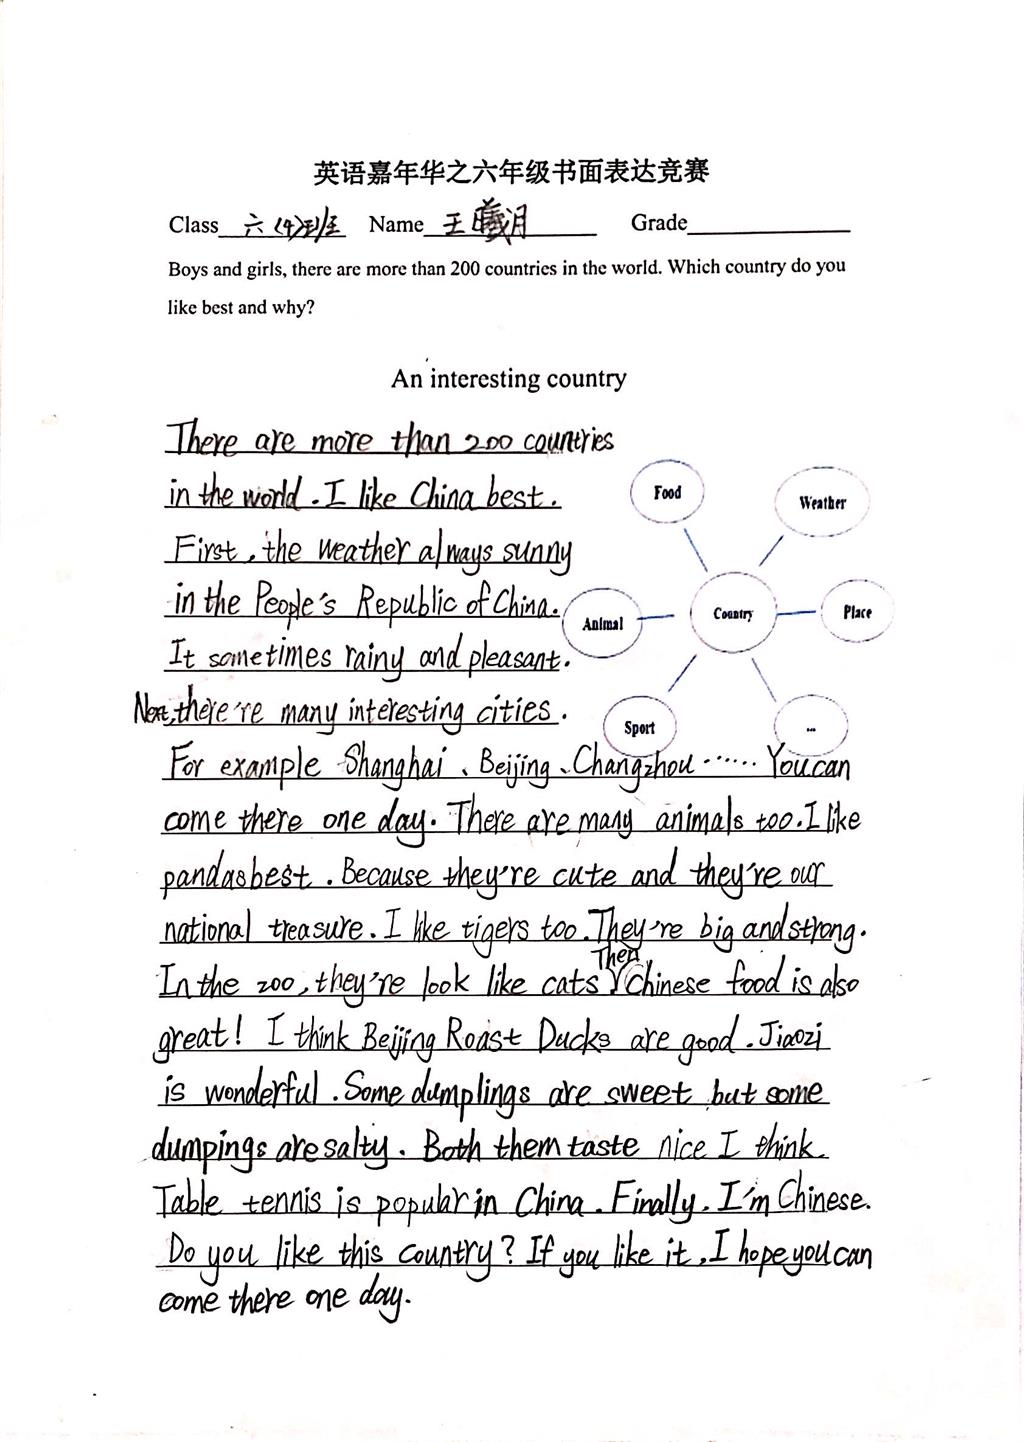 英语嘉年华之六年级书面表达竞赛
Class 六(4)班 Name 王曦月 Grade
Boys and girls, there are more than 200 countries in the world. Which country do you
like best and why?
An interesting country
There are more than 200 countries
in the world. I like China best.
First, the weather always sunny
in the People's Republic of China.
It sometimes rainy and pleasant.
Next, there're many interesting cities.
For example Shanghai、Beijing、Changzhou ······ You can
come there one day. There are many animals too. I like
pandas best. Because they're cute and they're our
national treasure. I like tigers too. They're big and strong.
In the zoo, they're look like cats. Then, Chinese food is also
great! I think Beijing Roast Ducks are good. Jiaozi
is wonderful. Some dumplings are sweet, but some
dumpings are salty. Both them taste nice I think.
Table tennis is popular in China. Finally, I'm Chinese.
Do you like this country? If you like it, I hope you can
come there one day.
Food
Weather
Animal
Country
Place
Sport
...